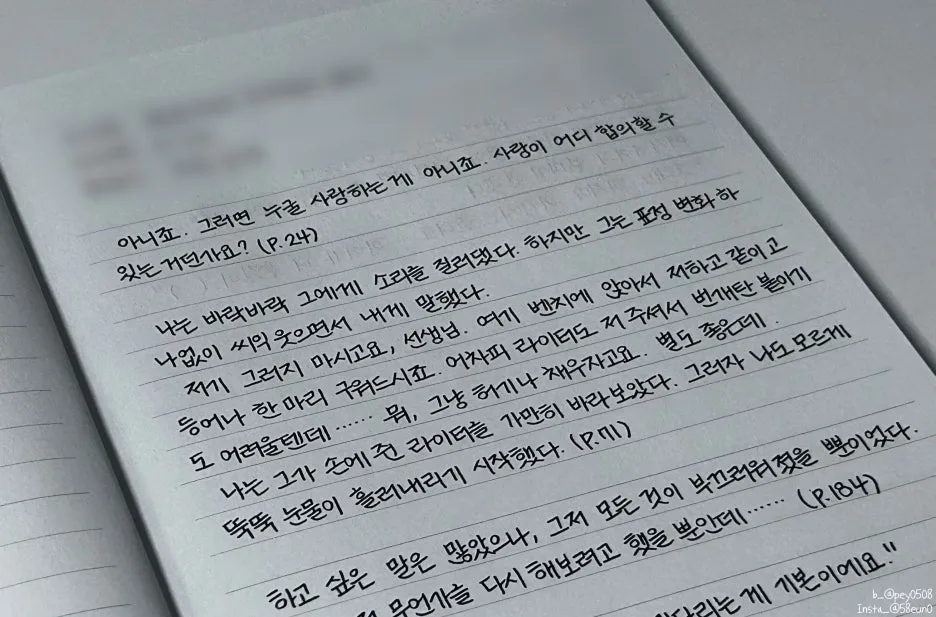 아니죠. 그러면 누굴 사랑하는 게 아니죠. 사랑이 어디 합의할 수
있는 거던가요? (p.24)
나는 바락바락 그에게 소리를 질러댔다. 하지만 그는 표정 변화 하
나 없이 씨익 웃으면서 내게 말했다.
저기 그러지 마시고요, 선생님. 여기 벤치에 앉아서 저하고 같이 고
등어나 한 마리 구워드시죠. 어차피 라이터도 저 주셔서 번개탄 붙이기
도 어려울텐데…… 뭐, 그냥 허기나 채우자고요. 별도 좋은데.
나는 그가 손에 쥔 라이터를 가만히 바라보았다. 그러자 나도 모르게
뚝뚝 눈물이 흘러내리기 시작했다. (p.71)
하고 싶은 말은 많았으나, 그저 모든 것이 부끄러워졌을 뿐이었다.
무언가를 다시 해보려고 했을 뿐인데…… (p.184)
다리는 게 기본이에요."
b_@pey0508
Insta_@58eun0